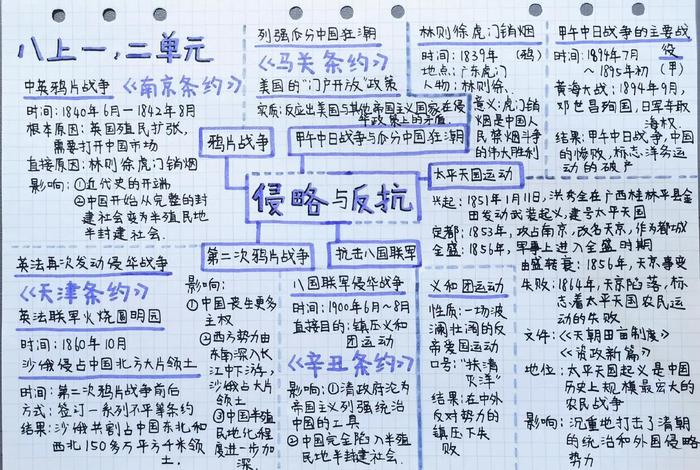 八上一,二单元
中英鸦片战争 《南京条约》
时间:1840年6月-1842年8月
根本原因:英国殖民扩张,
需要打开中国市场
直接原因:林则徐虎门销烟
影响:①近代史的开端
②中国开始从完整的封
建社会变为半殖民地
半封建社会.
列强瓜分中国狂潮
《马关条约》
美国的"门户开放"政策
实质:反应出美国与其他帝国主义国家在侵
华政策上的矛盾
林则徐虎门销烟
时间:1839年 (鸦)
地点:广东虎门
人物:林则徐.
意义:虎门销
烟是中国人
民禁烟斗争
的伟大胜利
甲午中日战争的主要战
役
时间:1894年7月
~1895年初 (甲)
黄海大战:1894年9月,
邓世昌殉国,日军夺取
海权.
结果:甲午中日战争,中国
的惨败,标志洋务运
动的破产
鸦片战争
甲午中日战争与瓜分中国狂潮
侵略与反抗
太平天国运动
第二次鸦片战争
抗击八国联军
兴起:1851年1月11日,洪秀全在广西桂林平县金
田发动武装起义,建号太平天国
定都:1853年,攻占南京,改名天京,作为都城
全盛:1856年,军事上进入全盛时期
由盛转衰:1856年,天京事变
失败:1864年,天京陷落,标
志着太平天国农民运
动的失败
文件:《天朝田亩制度》
《资政新篇》
地位:太平天国起义是中国
历史上规模最宏大的
农民战争
影响:沉重地打击了清朝
的统治和外国侵略
势力
英法再次发动侵华战争
《天津条约》
英法联军火烧圆明园
时间:1860年10月
沙俄侵占中国北方大片领土
时间:第二次鸦片战争前后
方式:签订一系列不平等条约
结果:沙俄共割占中国东北和
西北150多万平方千米领
土.
影响:
①中国丧失更多
主权
②西方势力由
东南深入长
江中下游,
沙俄占大片
领土
③中国半殖
民地化程
度进一步加
深.
八国联军侵华战争
时间:1900年6月~8月
直接目的:镇压义和
团运动
《辛丑条约》
影响:①清政府沦为
帝国主义列强统治
中国的工具
②中国完全陷入半殖
民地半封建社会.
义和团运动
性质:一场波
澜壮阔的反
帝爱国运动
口号:"扶清
灭洋"
结果:在中外
反对势力的
镇压下失
败